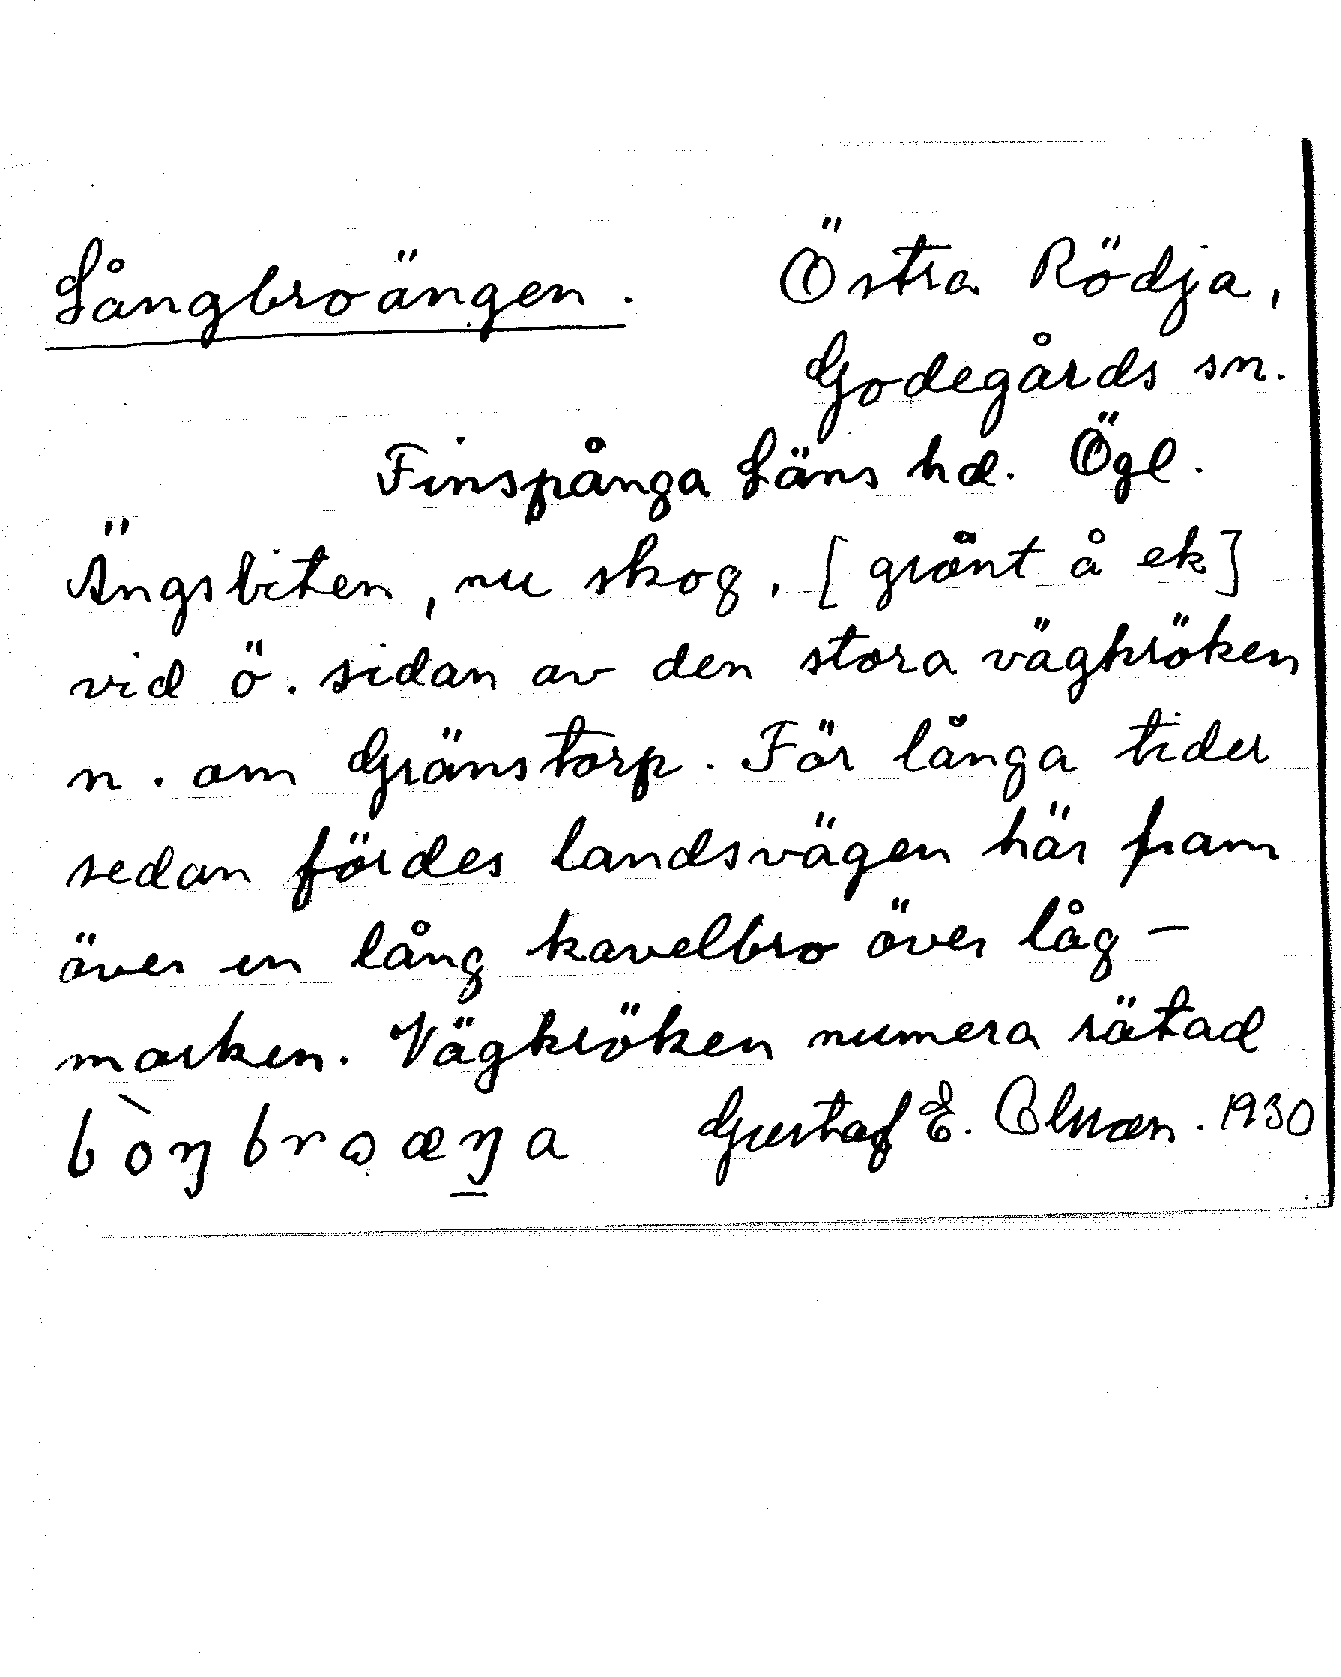 Långbroängen. Östra Rödja,
Godegårds sn.
Finspånga Läns hd. Ögl.
Ängsbiten, nu skog, [gränt å ek]
vid ö. sidan av den stora vägkröken
n. om Gränstorp. För långa tider
sedan fördes landsvägen här fram
över en lång kavelbro över låg-
marken. Vägkröken numera rätad
Gustaf E. Olsson. 1930